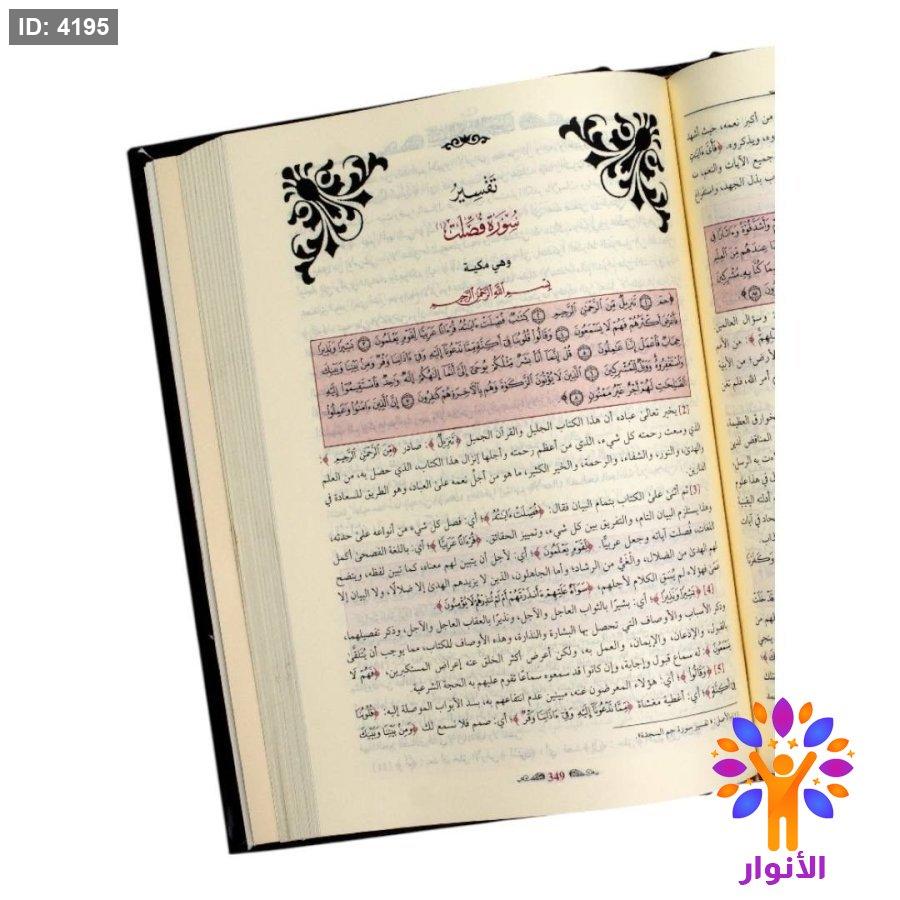 ID: 4195
تَفْسِيرُ
سُورَةِ فُصِّلَتْ (١)
وهي مكية
بِسْمِ اللَّهِ الرَّحْمَٰنِ الرَّحِيمِ
﴿حمٓ ۝١ تَنزِيلٌ مِّنَ ٱلرَّحْمَٰنِ ٱلرَّحِيمِ ۝٢ كِتَٰبٌ فُصِّلَتْ ءَايَٰتُهُۥ قُرْءَانًا عَرَبِيًّا لِّقَوْمٍ يَعْلَمُونَ ۝٣ بَشِيرًا وَنَذِيرًا
فَأَعْرَضَ أَكْثَرُهُمْ فَهُمْ لَا يَسْمَعُونَ ۝٤ وَقَالُوا۟ قُلُوبُنَا فِىٓ أَكِنَّةٍ مِّمَّا تَدْعُونَآ إِلَيْهِ وَفِىٓ ءَاذَانِنَا وَقْرٌ وَمِنۢ بَيْنِنَا وَبَيْنِكَ
حِجَابٌ فَٱعْمَلْ إِنَّنَا عَٰمِلُونَ ۝٥ قُلْ إِنَّمَآ أَنَا۠ بَشَرٌ مِّثْلُكُمْ يُوحَىٰٓ إِلَىَّ أَنَّمَآ إِلَٰهُكُمْ إِلَٰهٌ وَٰحِدٌ فَٱسْتَقِيمُوٓا۟ إِلَيْهِ
وَٱسْتَغْفِرُوهُ وَوَيْلٌ لِّلْمُشْرِكِينَ ۝٦ ٱلَّذِينَ لَا يُؤْتُونَ ٱلزَّكَوٰةَ وَهُم بِٱلْءَاخِرَةِ هُمْ كَٰفِرُونَ ۝٧ إِنَّ ٱلَّذِينَ ءَامَنُوا۟ وَعَمِلُوا۟
ٱلصَّٰلِحَٰتِ لَهُمْ أَجْرٌ غَيْرُ مَمْنُونٍ ۝٨﴾
[2] يخبر تعالى عباده أن هذا الكتاب الجليل والقرآن الجميل ﴿تَنزِيلٌ﴾: صادر ﴿مِّنَ ٱلرَّحْمَٰنِ ٱلرَّحِيمِ﴾:
الذي وسعت رحمته كل شيء، الذي من أعظم رحمته وأجلها إنزال هذا الكتاب، الذي حصل به، من العلم
والهدى، والنور، والشفاء، والرحمة، والخير الكثير، ما هو من أجلّ نعمه على العباد، وهو الطريق للسعادة في
الدارين.
[3] ثم أثنى على الكتاب بتمام البيان فقال: ﴿فُصِّلَتْ ءَايَٰتُهُۥ﴾؛ أي: فصل كل شيء من أنواعه على حدته،
وهذا يستلزم البيان التام، والتفريق بين كل شيء، وتمييز الحقائق. ﴿قُرْءَانًا عَرَبِيًّا﴾؛ أي: باللغة الفصحى أكمل
اللغات، فُصلت آياته وجعل عربيًّا ﴿لِّقَوْمٍ يَعْلَمُونَ﴾؛ أي: لأجل أن يتبين لهم معناه، كما تبين لفظه، ويتضح
لهم الهدى من الضلال، والغَيُّ من الرشاد؛ وأما الجاهلون، الذين لا يزيدهم الهدى إلا ضلالًا، ولا البيان إلا
عمًى فهؤلاء لم يُسَق الكلام لأجلهم، ﴿سَوَآءٌ عَلَيْهِمْ ءَأَنذَرْتَهُمْ أَمْ لَمْ تُنذِرْهُمْ لَا يُؤْمِنُونَ﴾.
[4] ﴿بَشِيرًا وَنَذِيرًا﴾؛ أي: بشيرًا بالثواب العاجل والآجل، ونذيرًا بالعقاب العاجل والآجل، وذكر تفصيلهما،
وذكر الأسباب والأوصاف التي تحصل بها البشارة والنذارة، وهذه الأوصاف للكتاب، مما يوجب أن يُتَلقَّى
بالقبول، والإذعان، والإيمان، والعمل به، ولكن أعرض أكثر الخلق عنه إعراض المستكبرين، ﴿فَهُمْ لَا
يَسْمَعُونَ﴾: له سماع قبول وإجابة، وإن كانوا قد سمعوه سماعًا تقوم عليهم به الحجة الشرعية.
[5] ﴿وَقَالُوا۟﴾؛ أي: هؤلاء المعرضون عنه، مبينين عدم انتفاعهم به، بسد الأبواب الموصلة إليه: ﴿قُلُوبُنَا
فِىٓ أَكِنَّةٍ﴾؛ أي: أغطية مغشاة ﴿مِّمَّا تَدْعُونَآ إِلَيْهِ وَفِىٓ ءَاذَانِنَا وَقْرٌ﴾؛ أي: صمم فلا نسمع لك ﴿وَمِنۢ بَيْنِنَا وَبَيْنِكَ
(١) الأصل: «تفسير سورة حم السجدة».
349
من أكبر نعمه، حيث أشهد
جميع الآيات والنعم،
بذل الجهد، واستفراغ
وسؤال العالمين
الأنوار